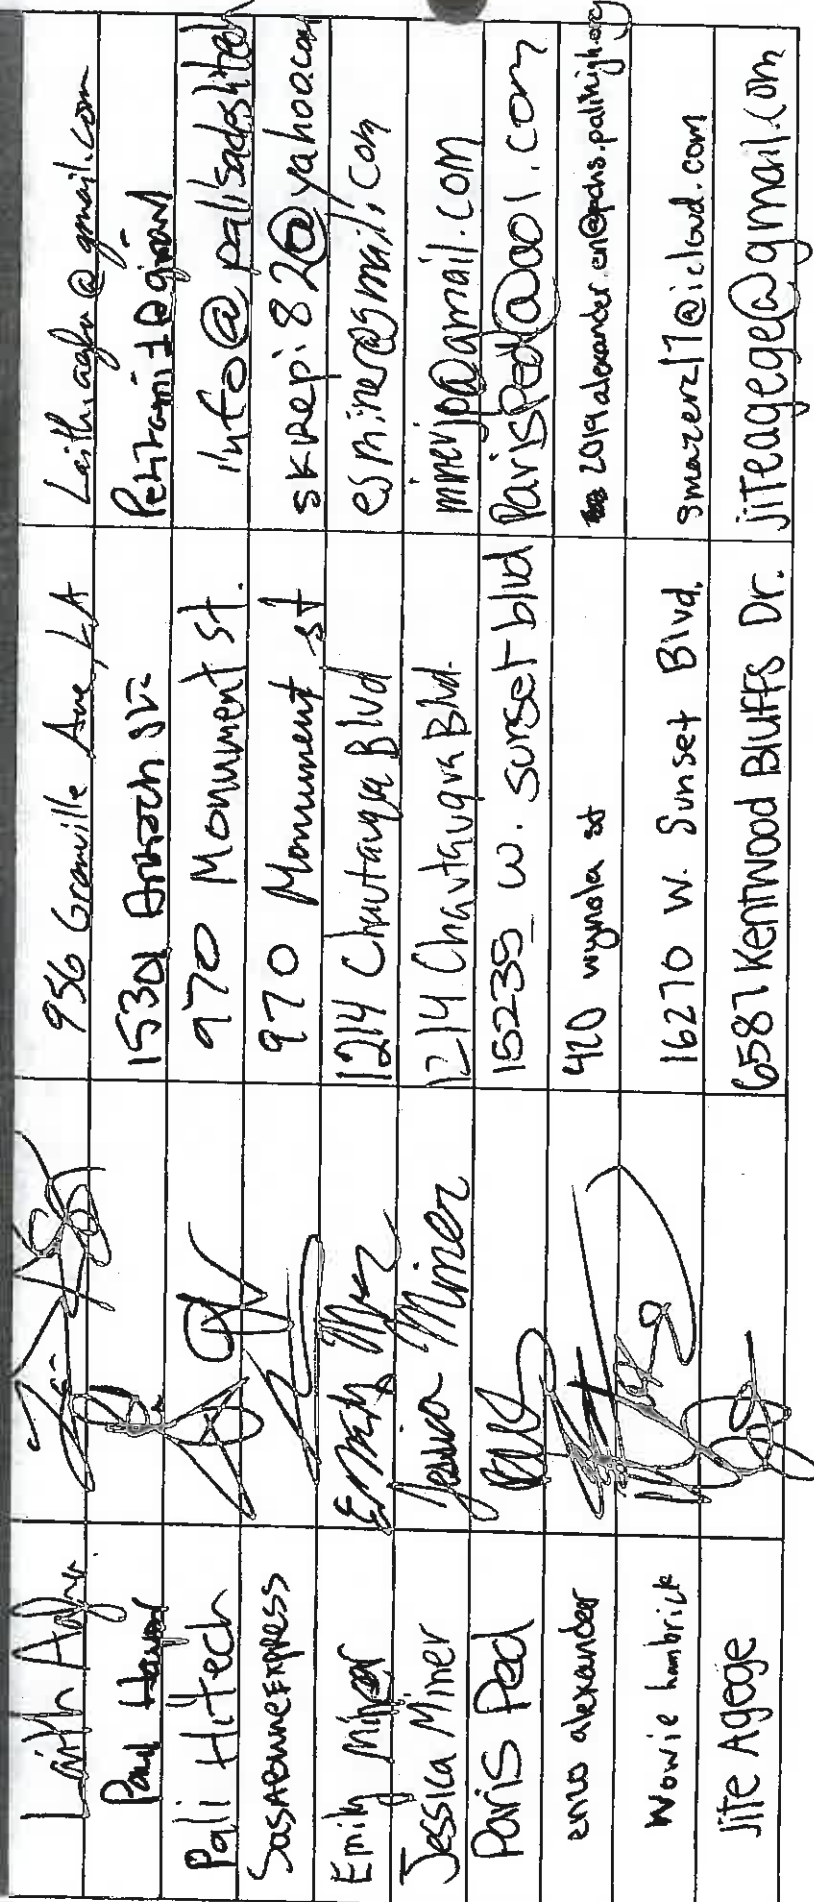 Laith 956 Granville Ave LA
Paul 15301
Pali HiTech 970 Monument st. info@palisadeshitech
970 Monument st skrepi82@yahoo.com
Emily Miner Emily 1214 Chautauqua Blvd esminer@gmail.com
Jessica Miner Jessica Miner 1214 Chautauqua Blvd. minerjp@gmail.com
Paris Ped 15235 W. sunset blvd Parisped1@aol.com
enzo alexander 420 wynola st 2019alexander.en@pchs.palihigh.org
Wowie hambrick 16270 W. Sunset Blvd. gmazerz17@icloud.com
Jite Agege 6587 Kentwood Bluffs Dr. jiteagege@gmail.com